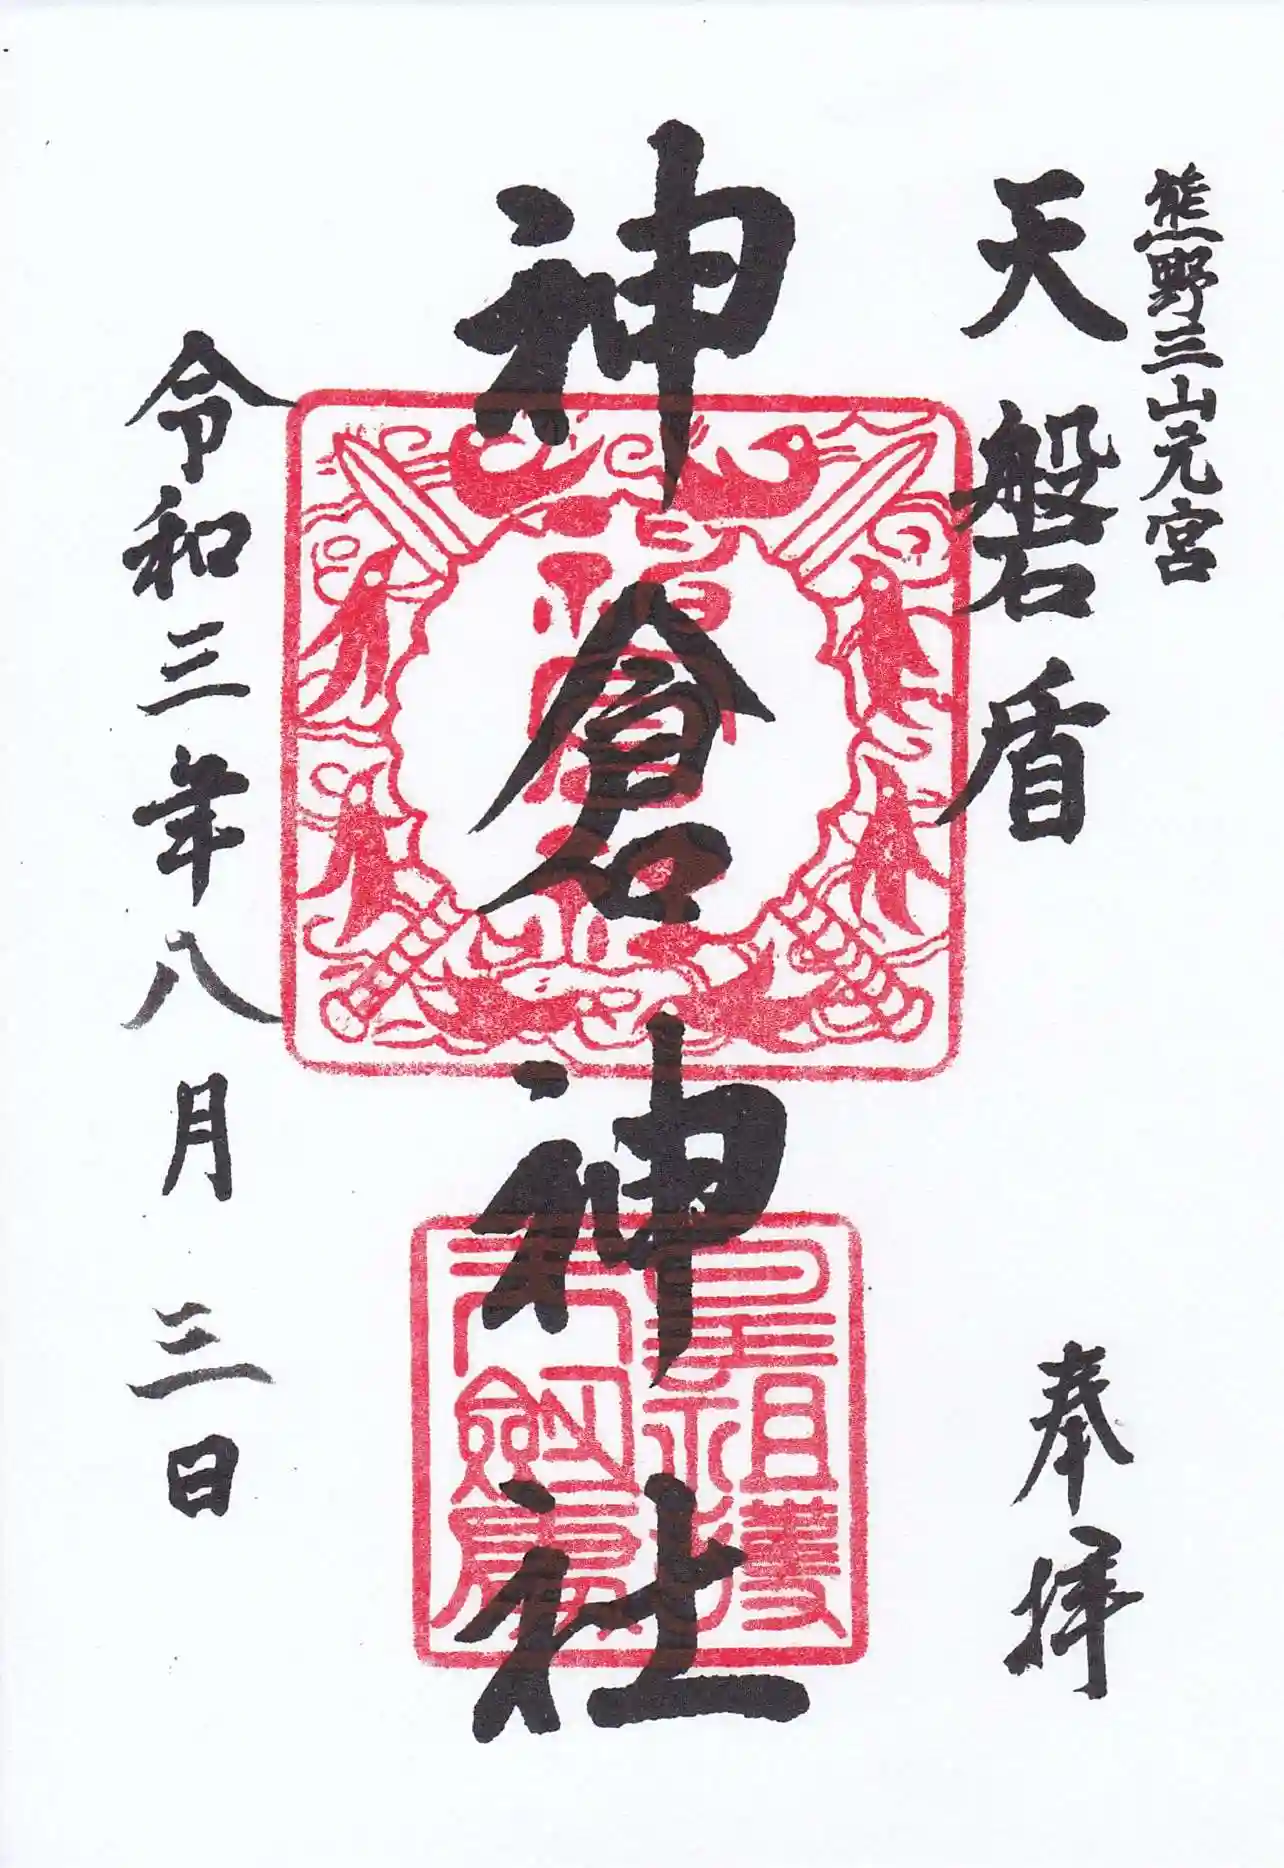 熊野三山元宮
天磐盾
奉拝
神倉神社
皇祖
令和三年八月三日